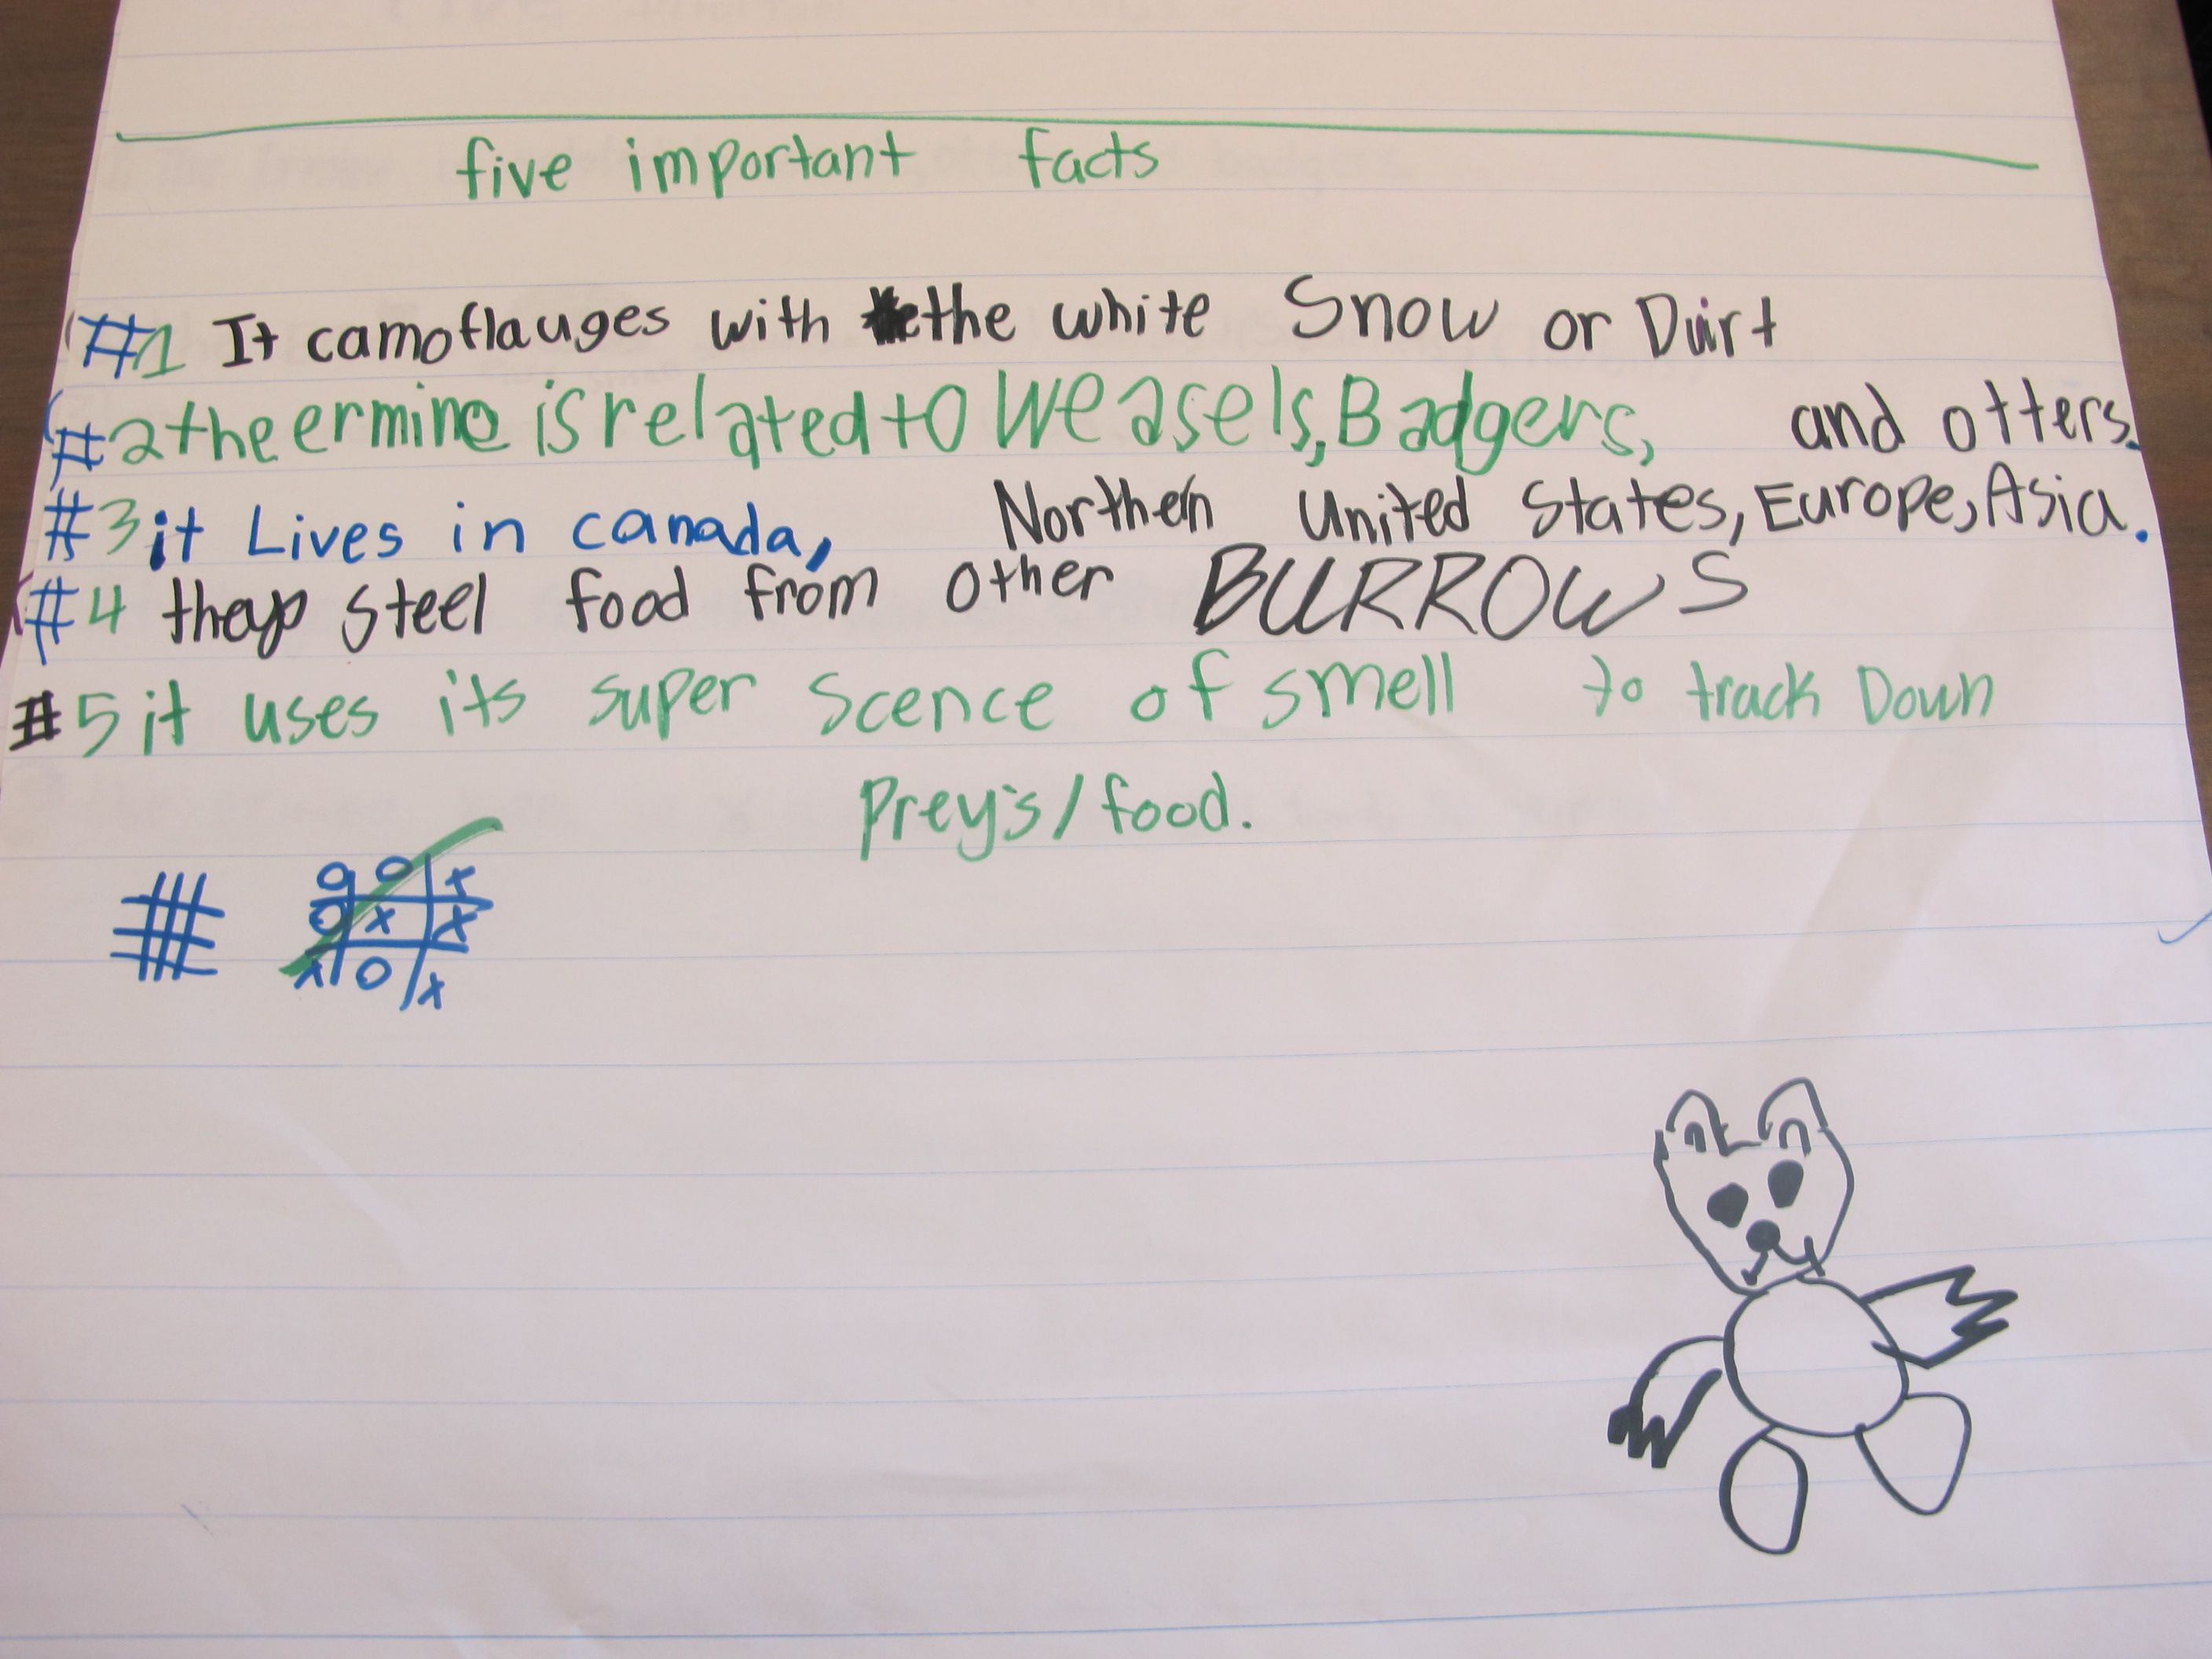 five important facts
#1 It camoflauges with the white Snow or Dirt
#2 the ermine is related to Weasels, Badgers, and otters.
#3 it Lives in canada, Northern United States, Europe, Asia.
#4 they steel food from other BURROWS
#5 it uses its super scence of smell to track Down
Prey's/food.
O O X
O X X
X O X